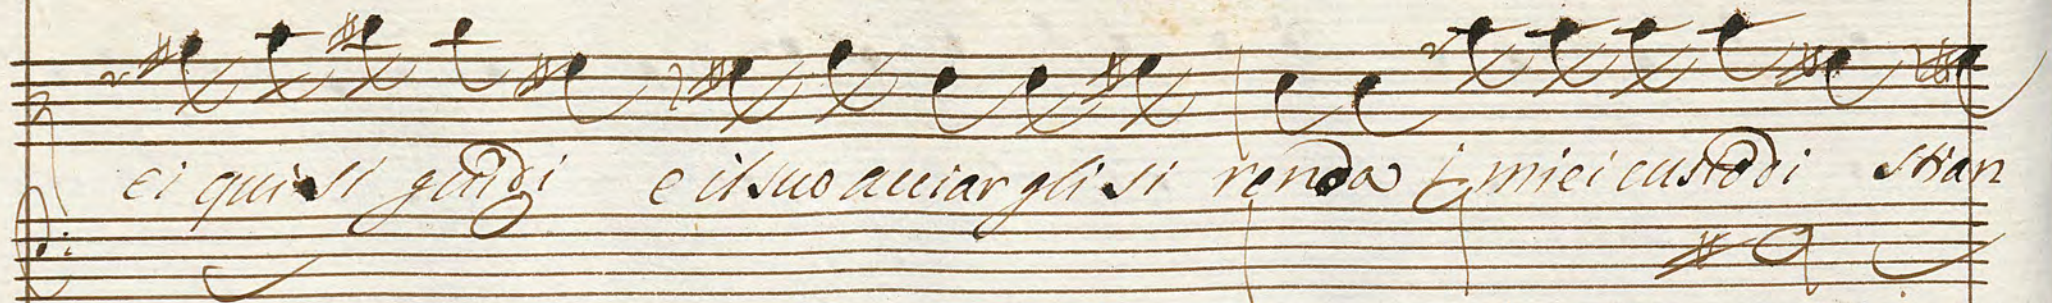 ei qui si guidi e il suo acciar gli si renda i miei custodi stian